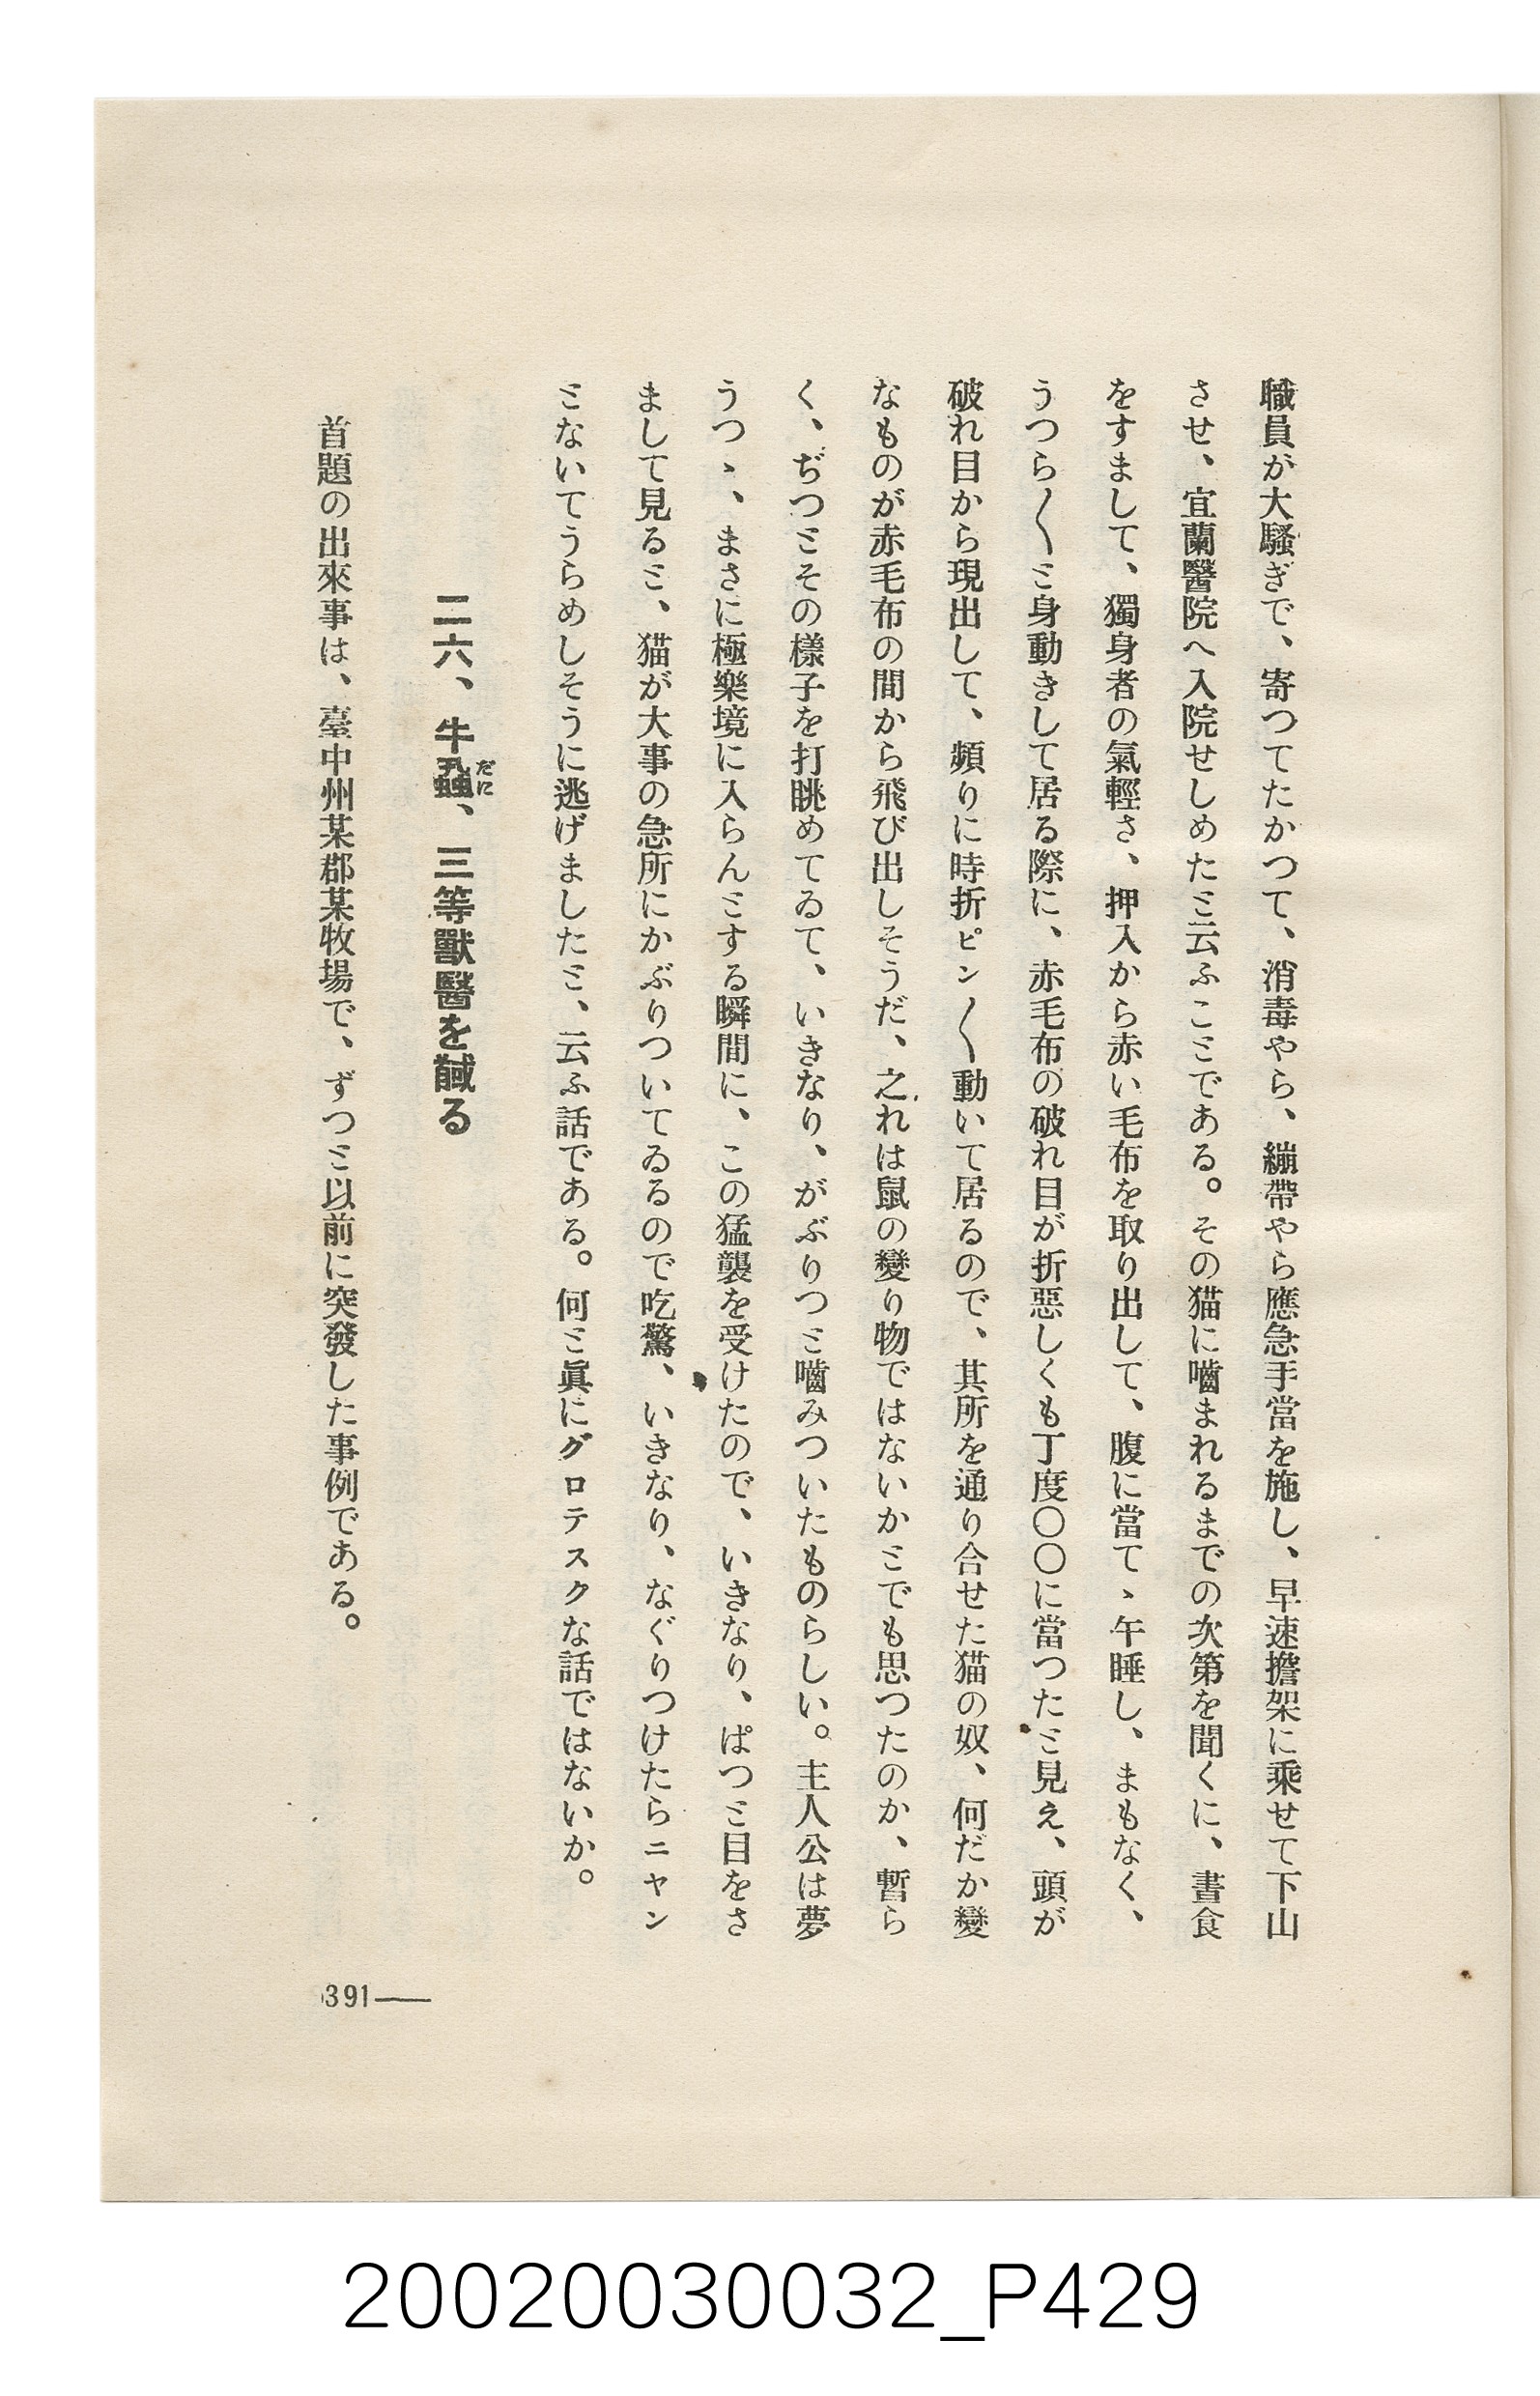 職員が大騷ぎで、寄つてたかつて、消毒やら、繃帶やら應急手當を施し、早速擔架に乘せて下山
させ、宜蘭醫院へ入院せしめたと云ふことである。その猫に嚙まれるまでの次第を聞くに、書食
をすまして、獨身者の氣輕さ、押入から赤い毛布を取り出して、腹に當てゝ午睡し、まもなく、
うつら〱と身動きして居る際に、赤毛布の破れ目が折惡しくも丁度〇〇に當つたと見え、頭が
破れ目から現出して、頻りに時折ピン〱動いて居るので、其所を通り合せた猫の奴、何だか變
なものが赤毛布の間から飛び出しそうだ、之れは鼠の變り物ではないかとでも思つたのか、暫ら
く、ぢつとその樣子を打眺めてゐて、いきなり、がぶりつと嚙みついたものらしい。主人公は夢
うつゝ、まさに極樂境に入らんとする瞬間に、この猛襲を受けたので、いきなり、ぱつと目をさ
まして見ると、猫が大事の急所にかぶりついてゐるので吃驚、いきなり、なぐりつけたらニヤン
とないてうらめしそうに逃げましたと、云ふ話である。何と眞にグロテスクな話ではないか。
二六、牛蝨、三等獸醫を馘る
だに
首題の出來事は、臺中州某郡某牧場で、ずつと以前に突發した事例である。
391——
20020030032_P429